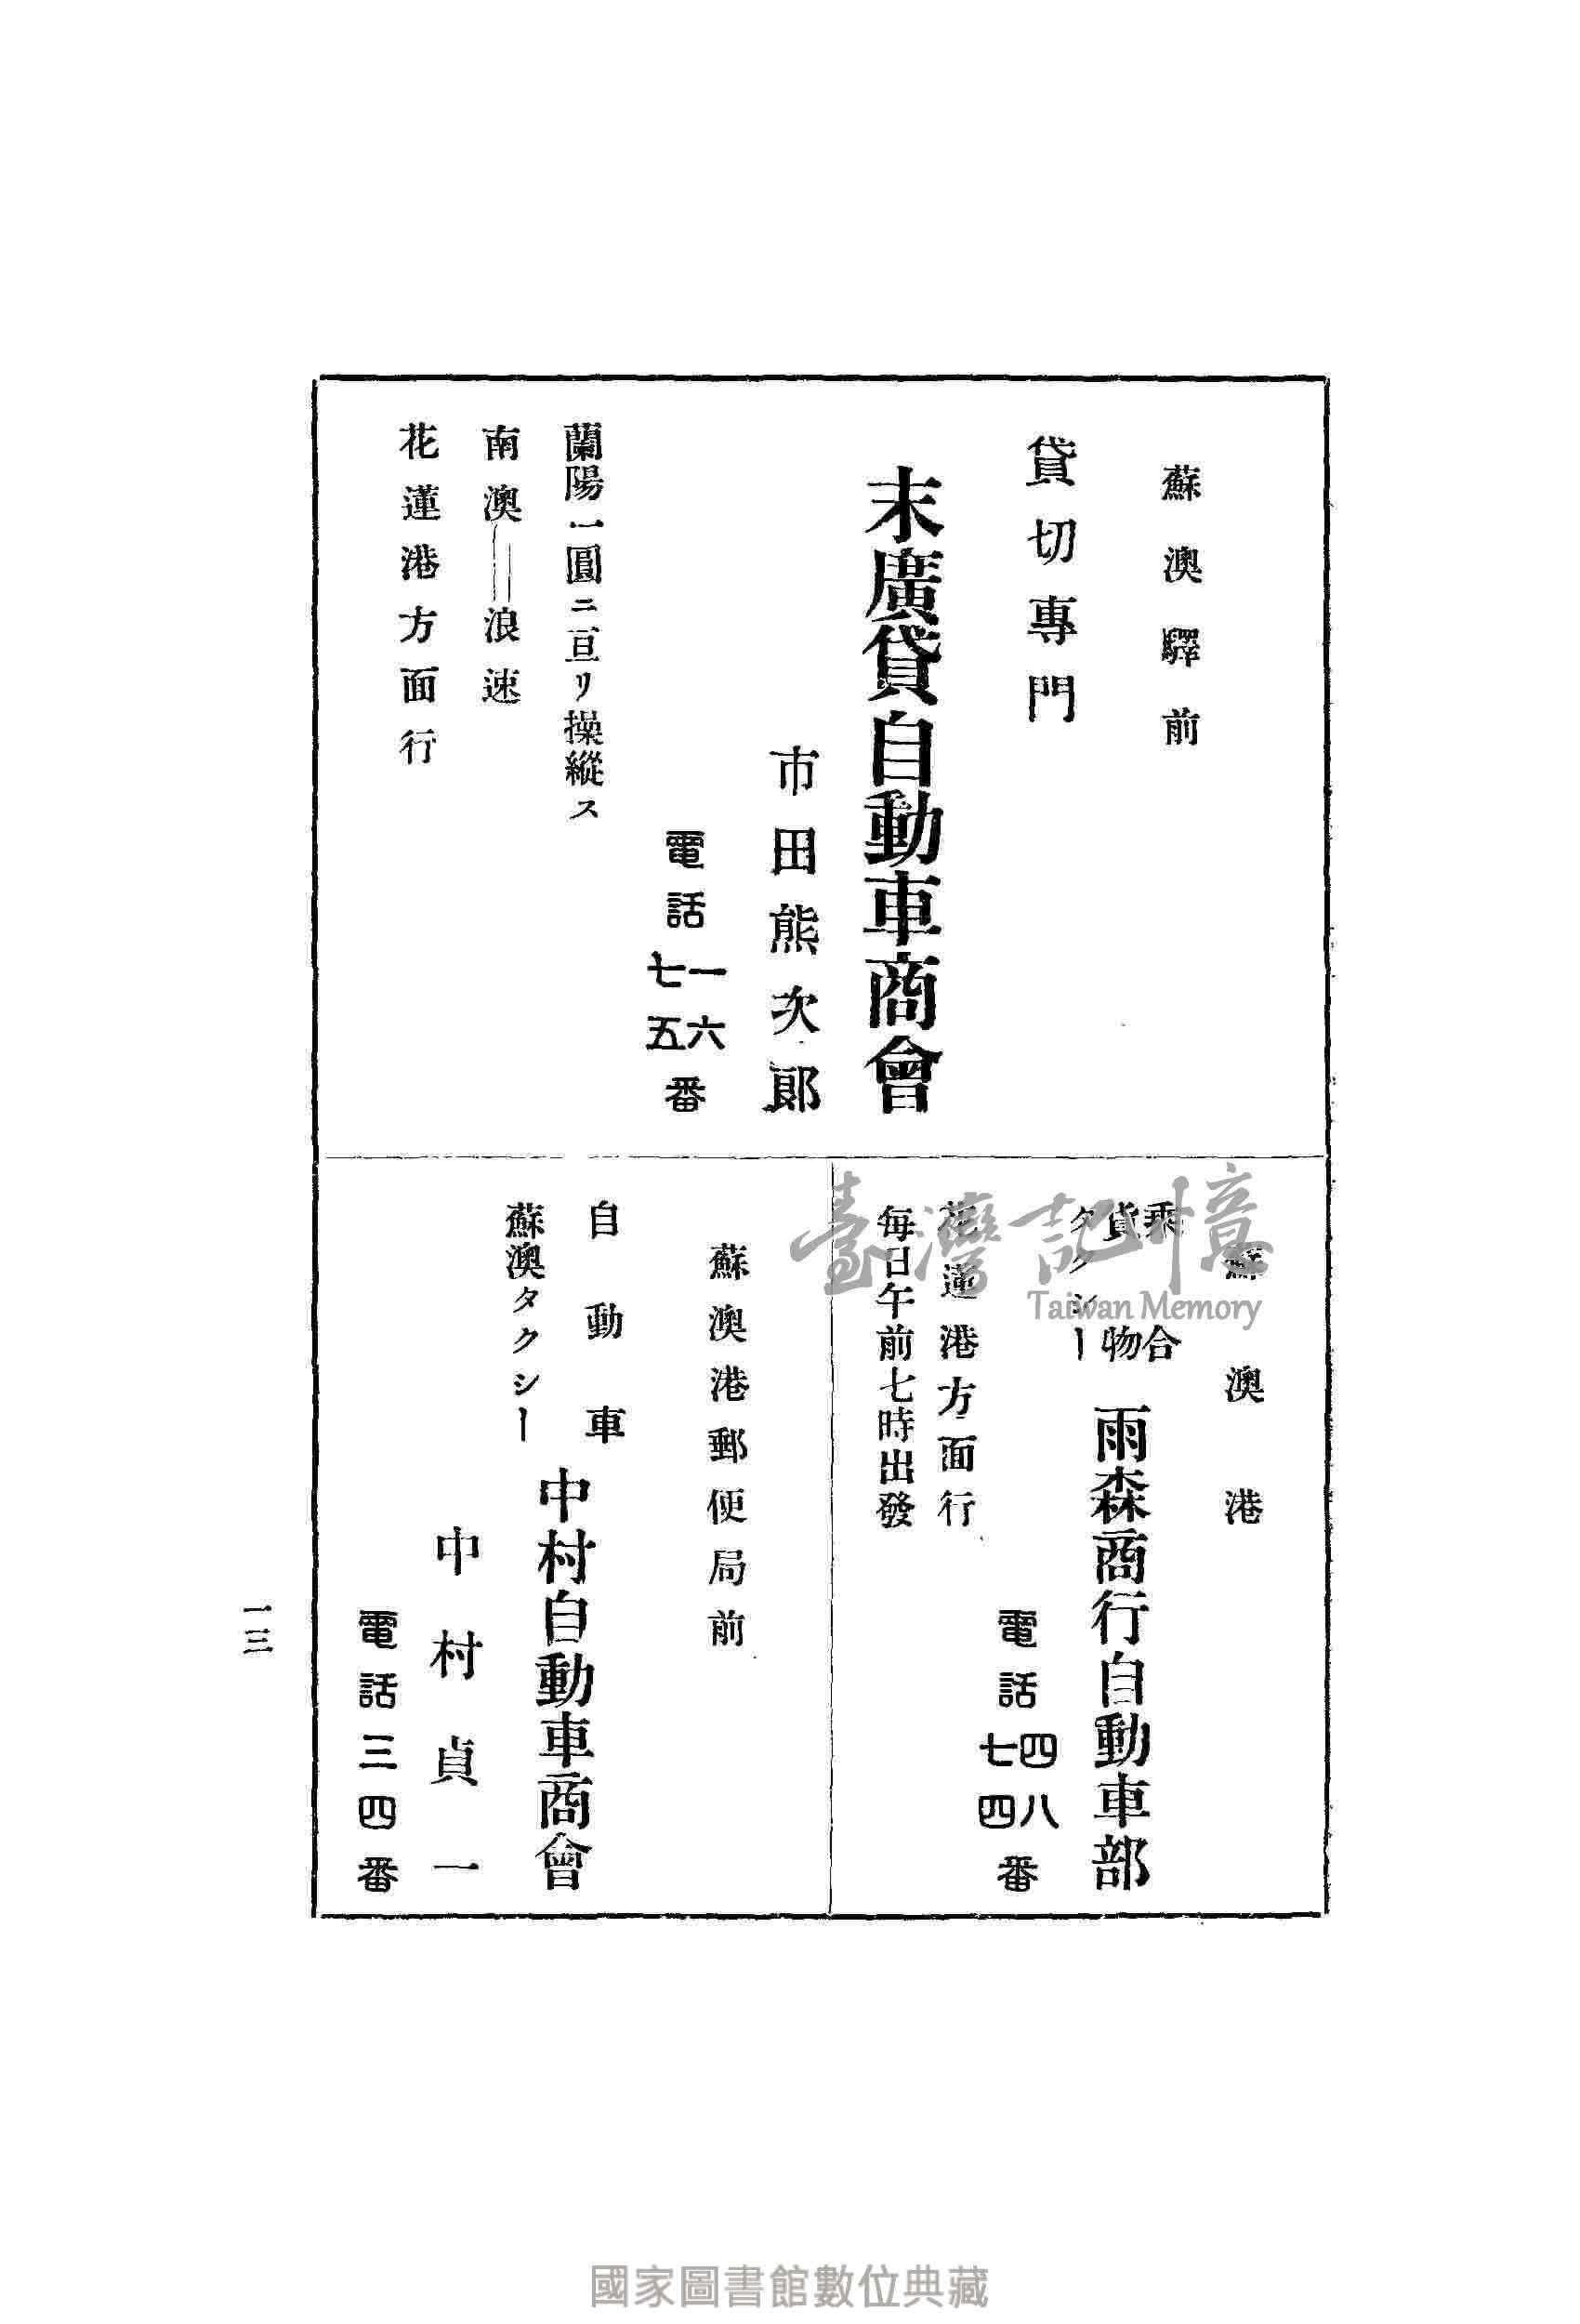 蘇澳驛前
貸切專門
末廣貸自動車商會
市田熊次郞
電話一六七五番
蘭陽一圓ニ亘リ操縱ス
南澳――浪速
花蓮港方面行
蘇澳港
乘合
貨物
タクシー
雨森商行自動車部
電話四八七四番
花蓮港方面行
每日午前七時出發
蘇澳港郵便局前
自動車
蘇澳タクシー
中村自動車商會
中村貞一
電話三四番
一三
臺灣記憶
Taiwan Memory
國家圖書館數位典藏